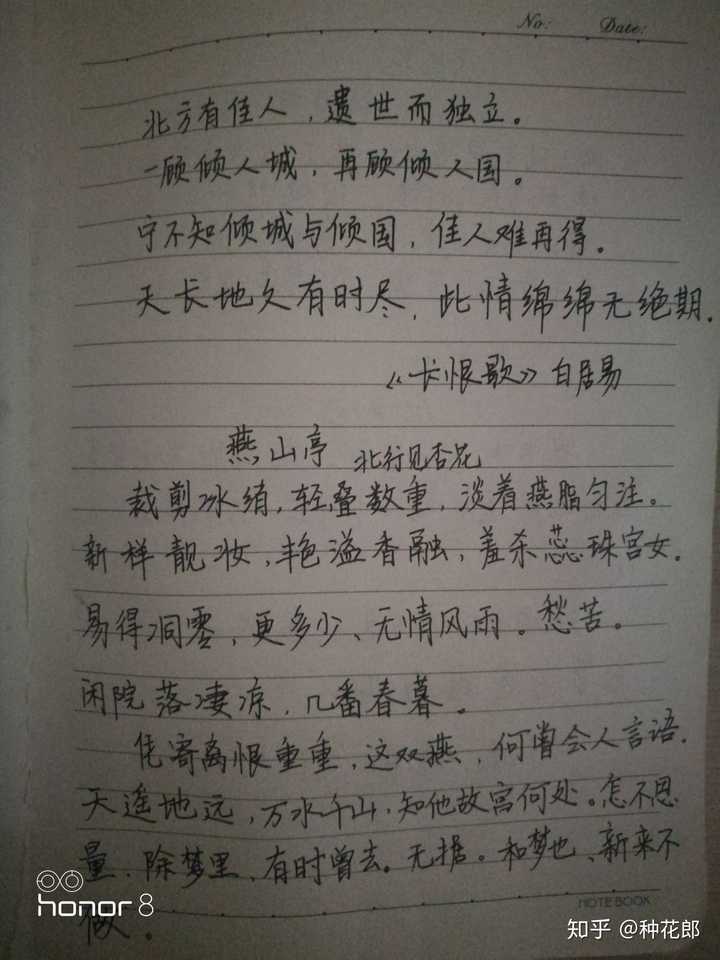 No: Date:
北方有佳人，遗世而独立。
一顾倾人城，再顾倾人国。
宁不知倾城与倾国，佳人难再得。
天长地久有时尽，此情绵绵无绝期.
《长恨歌》白居易
燕山亭 北行见杏花
裁剪冰绡，轻叠数重，淡着燕脂匀注。
新样靓妆，艳溢香融，羞杀蕊珠宫女.
易得凋零，更多少、无情风雨。愁苦。
闲院落凄凉，几番春暮。
凭寄离恨重重，这双燕，何曾会人言语.
天遥地远，万水千山，知他故宫何处。怎不思
量、除梦里、有时曾去。无据。和梦也、新来不
做。
NOTE BOOK
honor 8
知乎 @种花郎